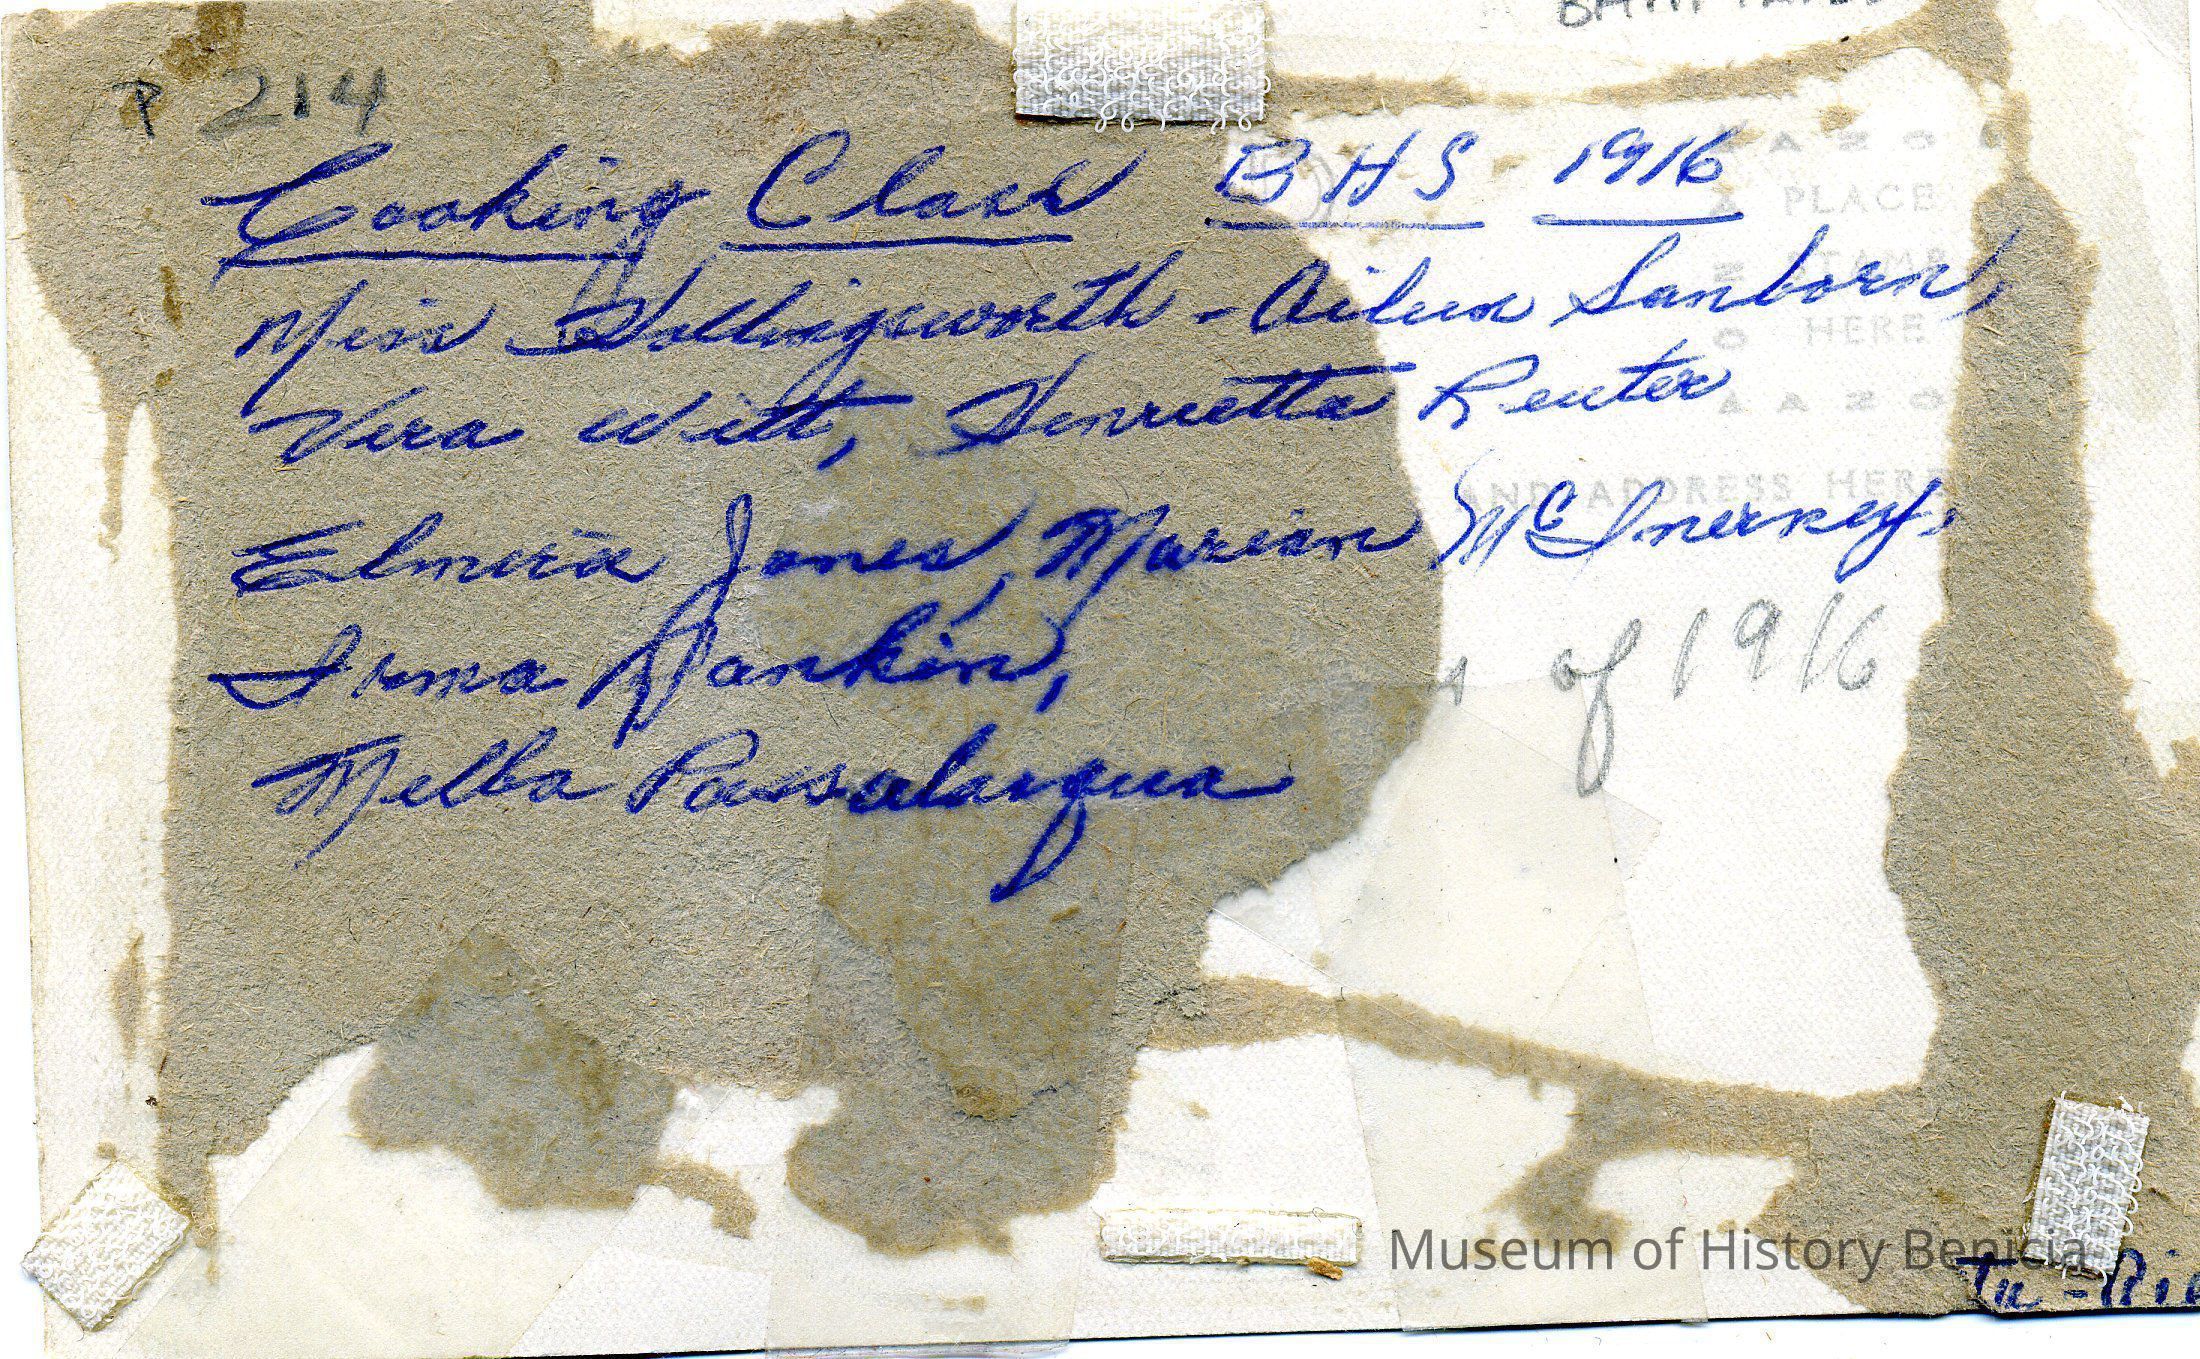 P 214
Cooking Class BHS 1916
AAZO
PLACE
STAMP
HERE
AAZO
Miss Hollingsworth - Aileen Sanborn,
Vera Witt, Henrietta Reuter
AND ADDRESS HERE
Elmira Jones, Marian McInerney,
Irma Dankin,
of 1916
Melba Passalaqua
Museum of History Benicia